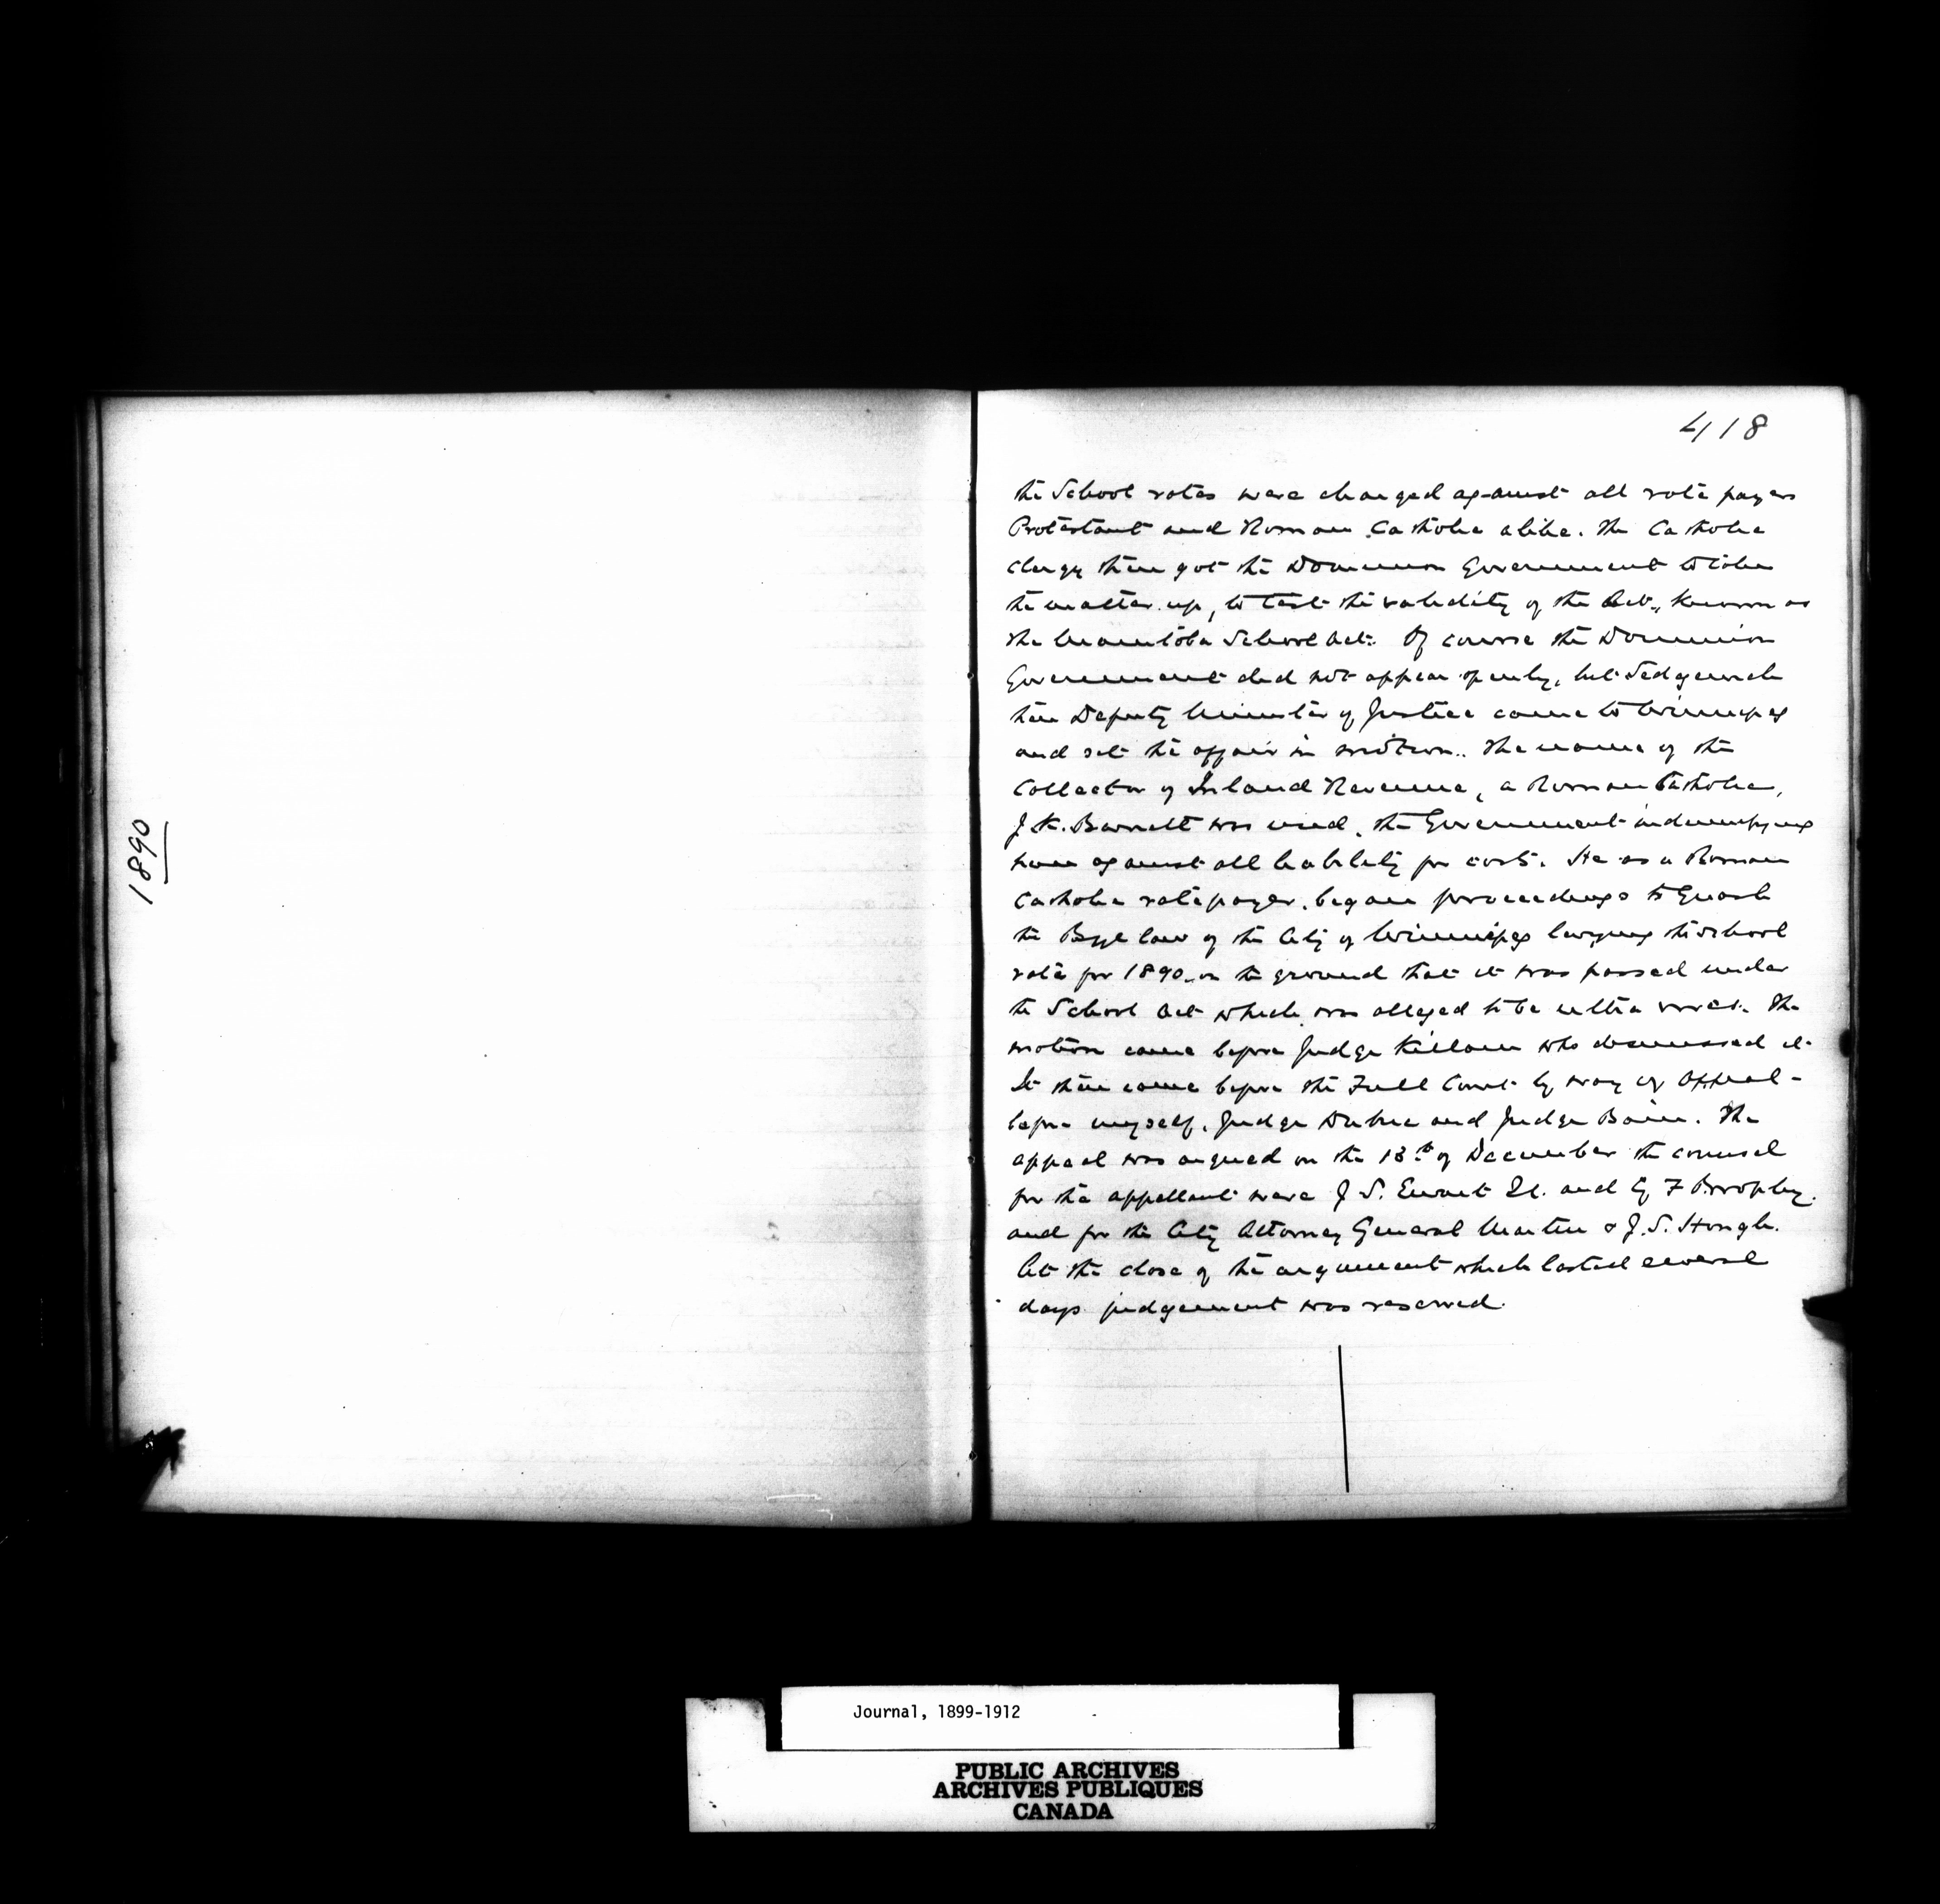 1890
418
the School rates were charged against all rate payers
Protestant and Roman Catholic alike. The Catholic
clergy then got the Dominion Government to take
the matter up, to test the validity of the Act, known as
the Manitoba School Act. Of course the Dominion
Government did not appear openly, but Sedgewick
then Deputy Minister of Justice came to Winnipeg
and set the affair in motion. The name of the
Collector of Inland Revenue, a Roman Catholic,
J K. Barrett was used, the Government indemnifying
him against all liability for costs. He as a Roman
Catholic rate payer, began proceedings to Quash
the Bye law of the City of Winnipeg levying the school
rate for 1890, on the ground that it was passed under
the School Act which was alleged to be ultra vires. The
motion came before Judge Killam who dismissed it.
It then came before the Full Court by way of Appeal -
before myself, Judge Dubuc and Judge Bain. The
appeal was argued on the 13th of December the counsel
for the appellant were J S. Ewart and G F Brophy.
and for the City Attorney General Martin & J. S. Hough.
At the close of the argument which lasted several
days judgement was reserved.
Journal, 1899-1912
PUBLIC ARCHIVES
ARCHIVES PUBLIQUES
CANADA